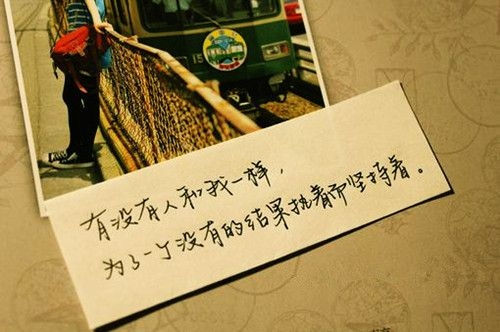 有没有人和我一样，
为了一个没有的结果执着而坚持着。